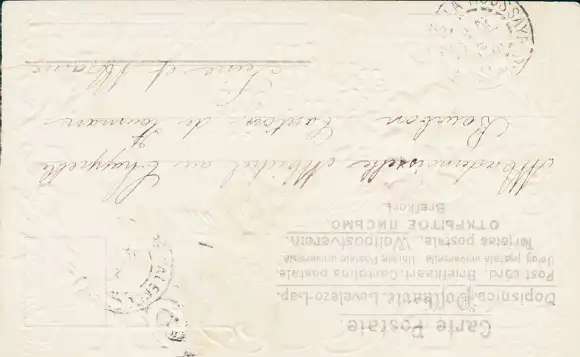 Carte Postale
Dopisnica. Levelezo-Lap.
Post card. Briefkaart. Cartolina postale
Union postale universelle
Tarjetas postale. Weltpostverein.
ОТКРЫТОЕ ПИСЬМО.
Brefkort
Mademoiselle Michel aux Chapelle
Bourbon Canton de Tournan
Seine et Marne
LA HOUSSAYE